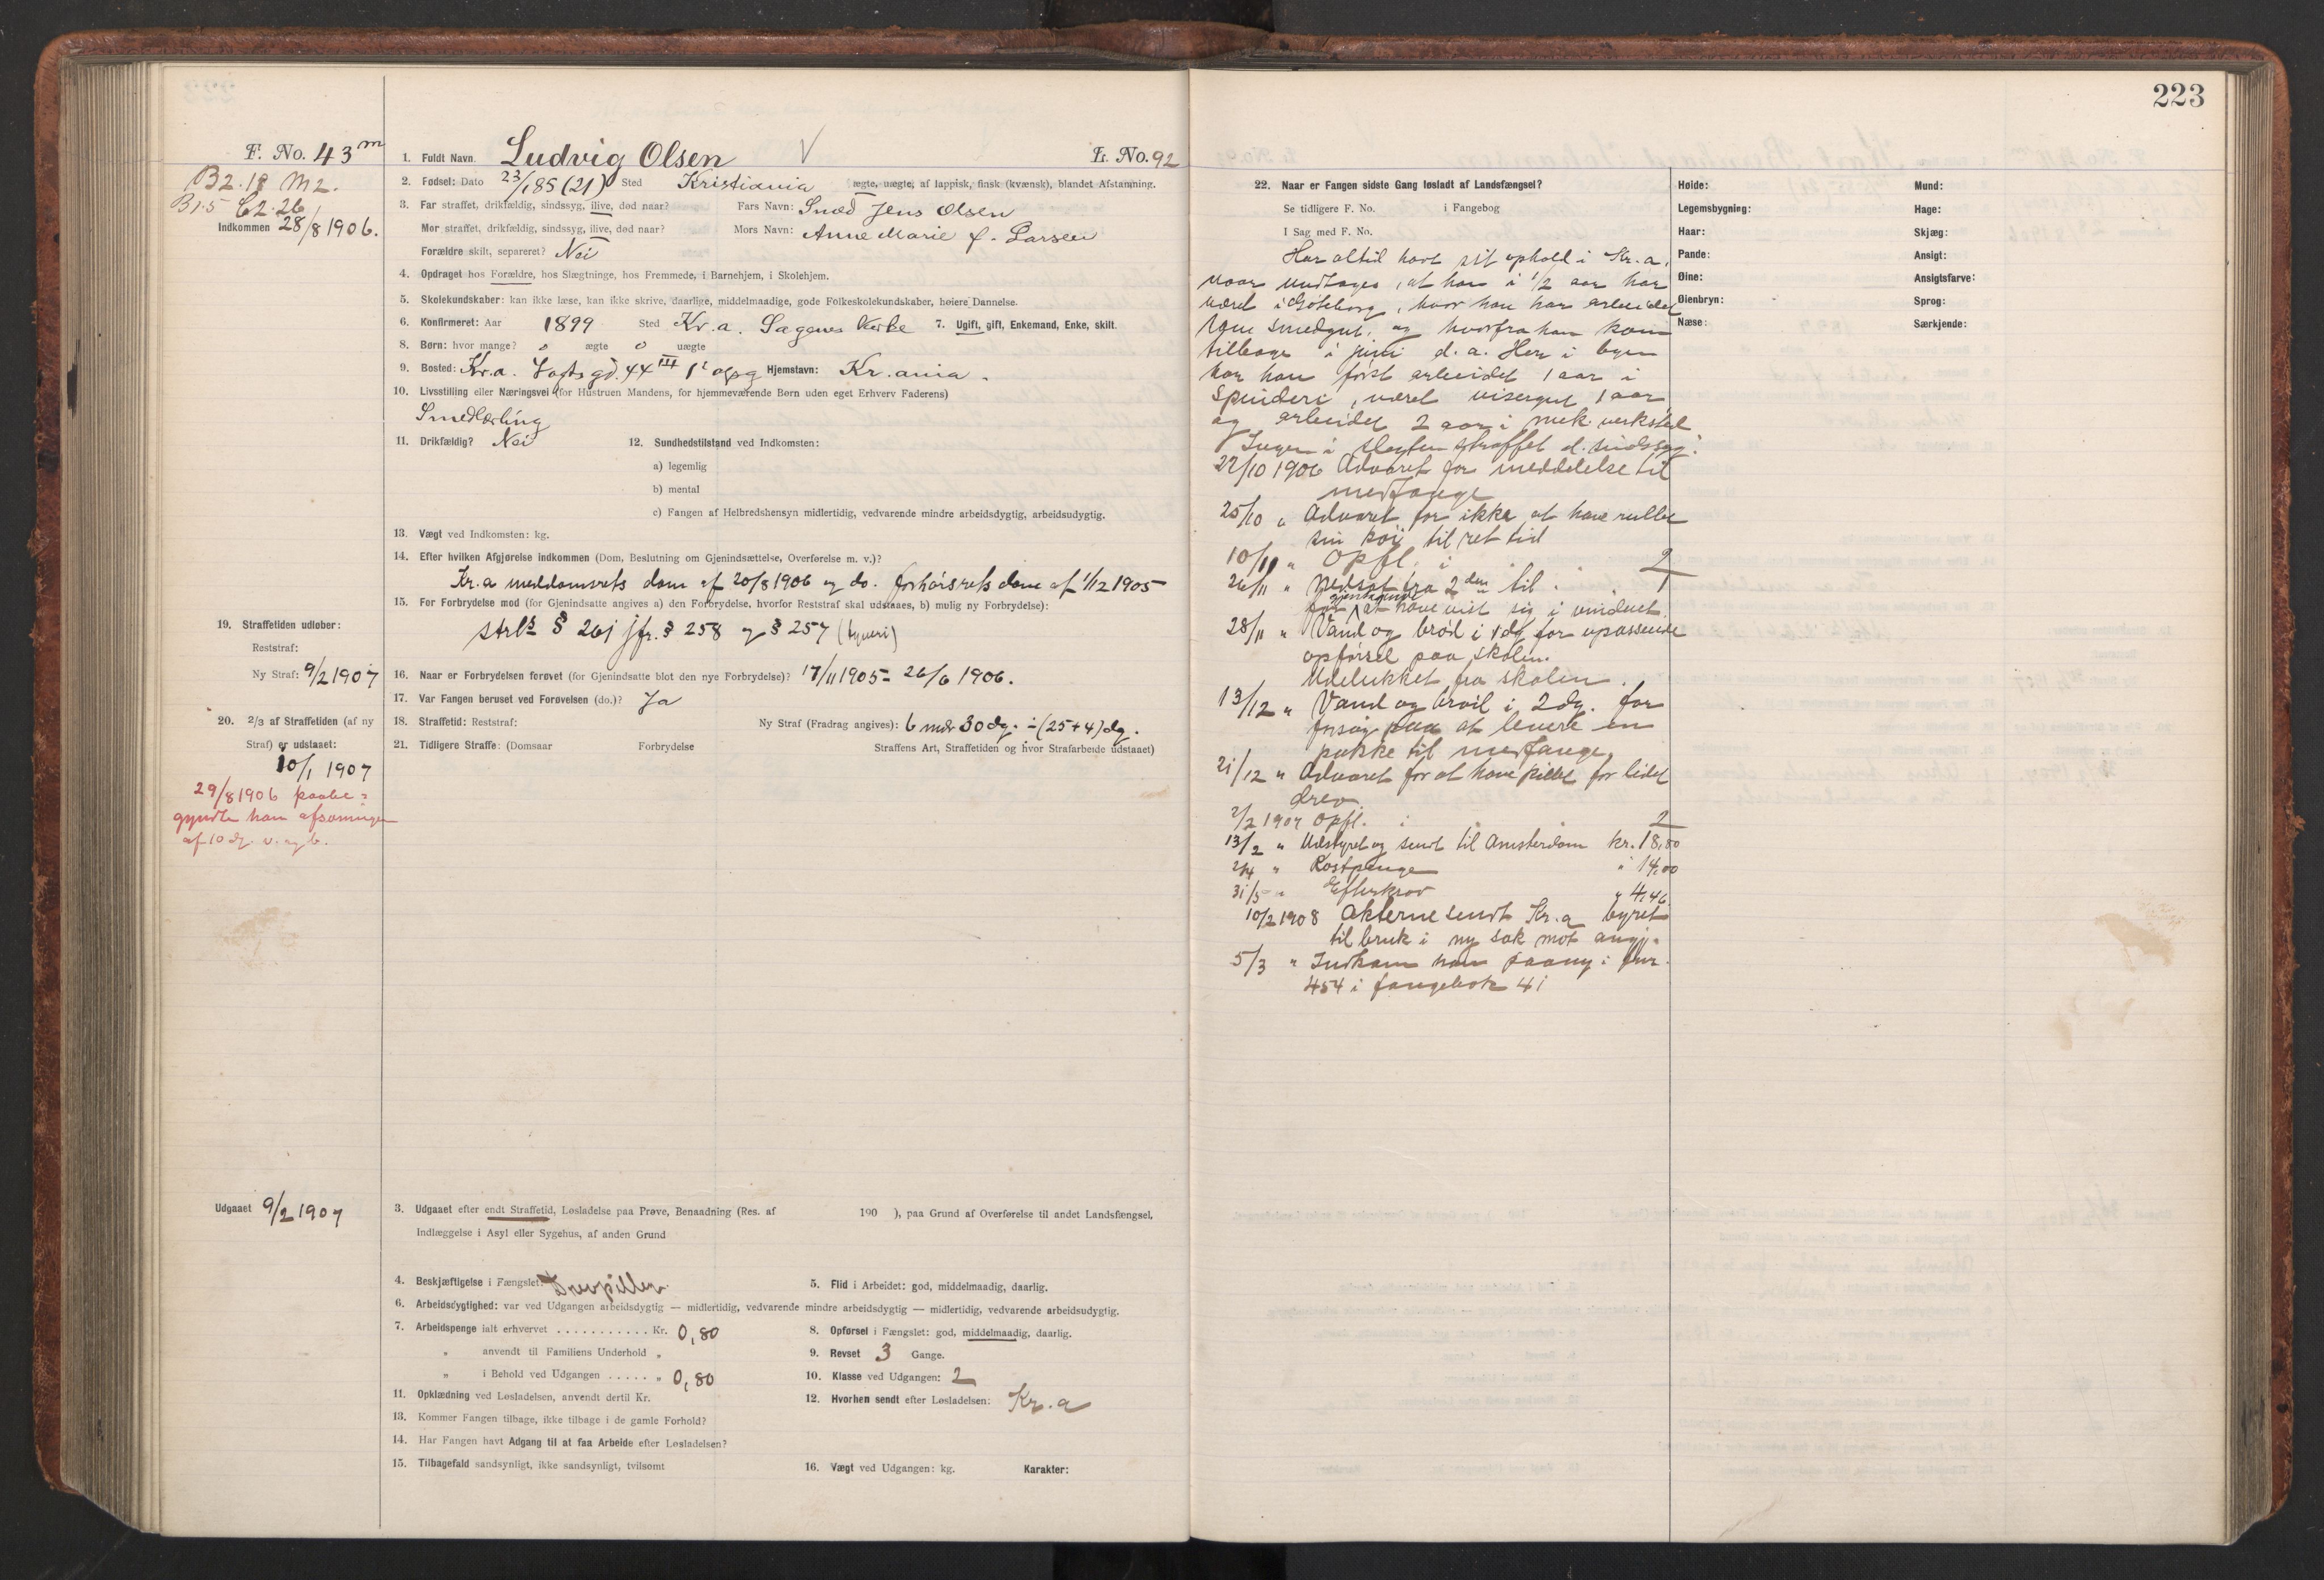 223
F. No. 43 m
B2.18 M2.
B1.5 C2.26
Indkommen 28/8 1906.
1. Fuldt Navn Ludvig Olsen V L. No. 92
2. Fødsel: Dato 23/1 85 (21) Sted Kristiania ægte, uægte, af lappisk, finsk (kvænsk), blandet Afstamning.
3. Far straffet, drikfældig, sindssyg, ilive, død naar? Fars Navn: Smed Jens Olsen
Mor straffet, drikfældig, sindssyg, ilive, død naar? Mors Navn: Anne Marie f. Larsen
Forældre skilt, separeret? Nei
4. Opdraget hos Forældre, hos Slægtninge, hos Fremmede, i Barnehjem, i Skolehjem.
5. Skolekundskaber: kan ikke læse, kan ikke skrive, daarlige, middelmaadige, gode Folkeskolekundskaber, høiere Dannelse.
6. Konfirmeret: Aar 1899 Sted Kr.a. Sagenes Kirke 7. Ugift, gift, Enkemand, Enke, skilt.
8. Børn: hvor mange? 0 ægte 0 uægte
9. Bosted: Kr.a. gd. 44 III opg Hjemstavn: Kr.ania.
10. Livsstilling eller Næringsvei (for Hustruen Mandens, for hjemmeværende Børn uden eget Erhverv Faderens)
Smedlærling
11. Drikfældig? Nei 12. Sundhedstilstand ved Indkomsten:
a) legemlig
b) mental
c) Fangen af Helbredshensyn midlertidig, vedvarende mindre arbeidsdygtig, arbeidsudygtig.
13. Vægt ved Indkomsten: kg.
14. Efter hvilken Afgjørelse indkommen (Dom, Beslutning om Gjenindsættelse, Overførelse m. v.)?
Kr.a meddomsrets dom af 20/8 1906 og do. forhørsrets dom af 1/12 1905
15. For Forbrydelse mod (for Gjenindsatte angives a) den Forbrydelse, hvorfor Reststraf skal udstaaes, b) mulig ny Forbrydelse):
strls § 261 jfr. § 258 og § 257 (tyveri)
19. Straffetiden udløber:
Reststraf:
Ny Straf: 9/2 1907
16. Naar er Forbrydelsen forøvet (for Gjenindsatte blot den nye Forbrydelse)? 17/11 1905 - 26/6 1906.
17. Var Fangen beruset ved Forøvelsen (do.)? Ja
20. 2/3 af Straffetiden (af ny
Straf) er udstaaet:
10/1 1907
18. Straffetid: Reststraf: Ny Straf (Fradrag angives): 6 mdr 30 dg. ÷ (25+4) dg.
21. Tidligere Straffe: (Domsaar Forbrydelse Straffens Art, Straffetiden og hvor Strafarbeide udstaaet)
29/8 1906 paabe=
gyndte han afsoningen
af 10 dg. v. og b.
Udgaaet 9/2 1907
3. Udgaaet efter endt Straffetid, Løsladelse paa Prøve, Benaadning (Res. af 190 ), paa Grund af Overførelse til andet Landsfængsel,
Indlæggelse i Asyl eller Sygehus, af anden Grund
4. Beskjæftigelse i Fængslet: Drevpiller 5. Flid i Arbeidet: god, middelmaadig, daarlig.
6. Arbeidsdygtighed: var ved Udgangen arbeidsdygtig — midlertidig, vedvarende mindre arbeidsdygtig — midlertidig, vedvarende arbeidsudygtig.
7. Arbeidspenge ialt erhvervet ........... Kr. 0,80 8. Opførsel i Fængslet: god, middelmaadig, daarlig.
" anvendt til Familiens Underhold " 9. Revset 3 Gange.
" i Behold ved Udgangen ..... " 0,80 10. Klasse ved Udgangen: 2
11. Opklædning ved Løsladelsen, anvendt dertil Kr. 12. Hvorhen sendt efter Løsladelsen: Kr.a
13. Kommer Fangen tilbage, ikke tilbage i de gamle Forhold?
14. Har Fangen havt Adgang til at faa Arbeide efter Løsladelsen?
15. Tilbagefald sandsynligt, ikke sandsynligt, tvilsomt 16. Vægt ved Udgangen: kg. Karakter:
22. Naar er Fangen sidste Gang løsladt af Landsfængsel?
Se tidligere F. No. i Fangebog
I Sag med F. No.
Har altid havt sit ophold i Kr.a,
naar undtages, at han i 1/2 aar har
været i Gøteborg, hvor han har arbeidet
som smedgut, og hvorfra han kom
tilbage i juni d.a. Her i byen
har han først arbeidet 1 aar i
Spinderi, været visergut 1 aar
og arbeidet 2 aar i mek. verksted
Ingen i slegten straffet el. sindssyg.
22/10 1906 Advaret for meddelelse til
medfange
25/10 " Advaret for ikke at have rullet
sin køi til ret tid
10/11 " Opfl. i 2
26/11 " Nedsat fra 2den til 1
for gjentagende at have vist sig i vinduet.
28/11 " Vand og brød i 1 dg for upassende
opførsel paa skolen.
Udelukket fra skolen.
13/12 " Vand og brød i 2 dg. for
forsøg paa at levere en
pakke til medfange.
21/12 " Advaret for at have pillet for lidet
drev.
2/2 1907 Opfl. i 2
13/2 " Udstyret og sendt til Amsterdam kr. 18,80
2/4 " Kostpenge " 14,00
31/5 " Efterkrav " 4,46
10/2 1908 Akterne sendt Kr.a byret
til bruk i ny sak mot angj.
5/3 " Indkom han paany i fnr.
454 i fangebok 41
Høide: Mund:
Legemsbygning: Hage:
Haar: Skjæg:
Pande: Ansigt:
Øine: Ansigtsfarve:
Øienbryn: Sprog:
Næse: Særkjende: